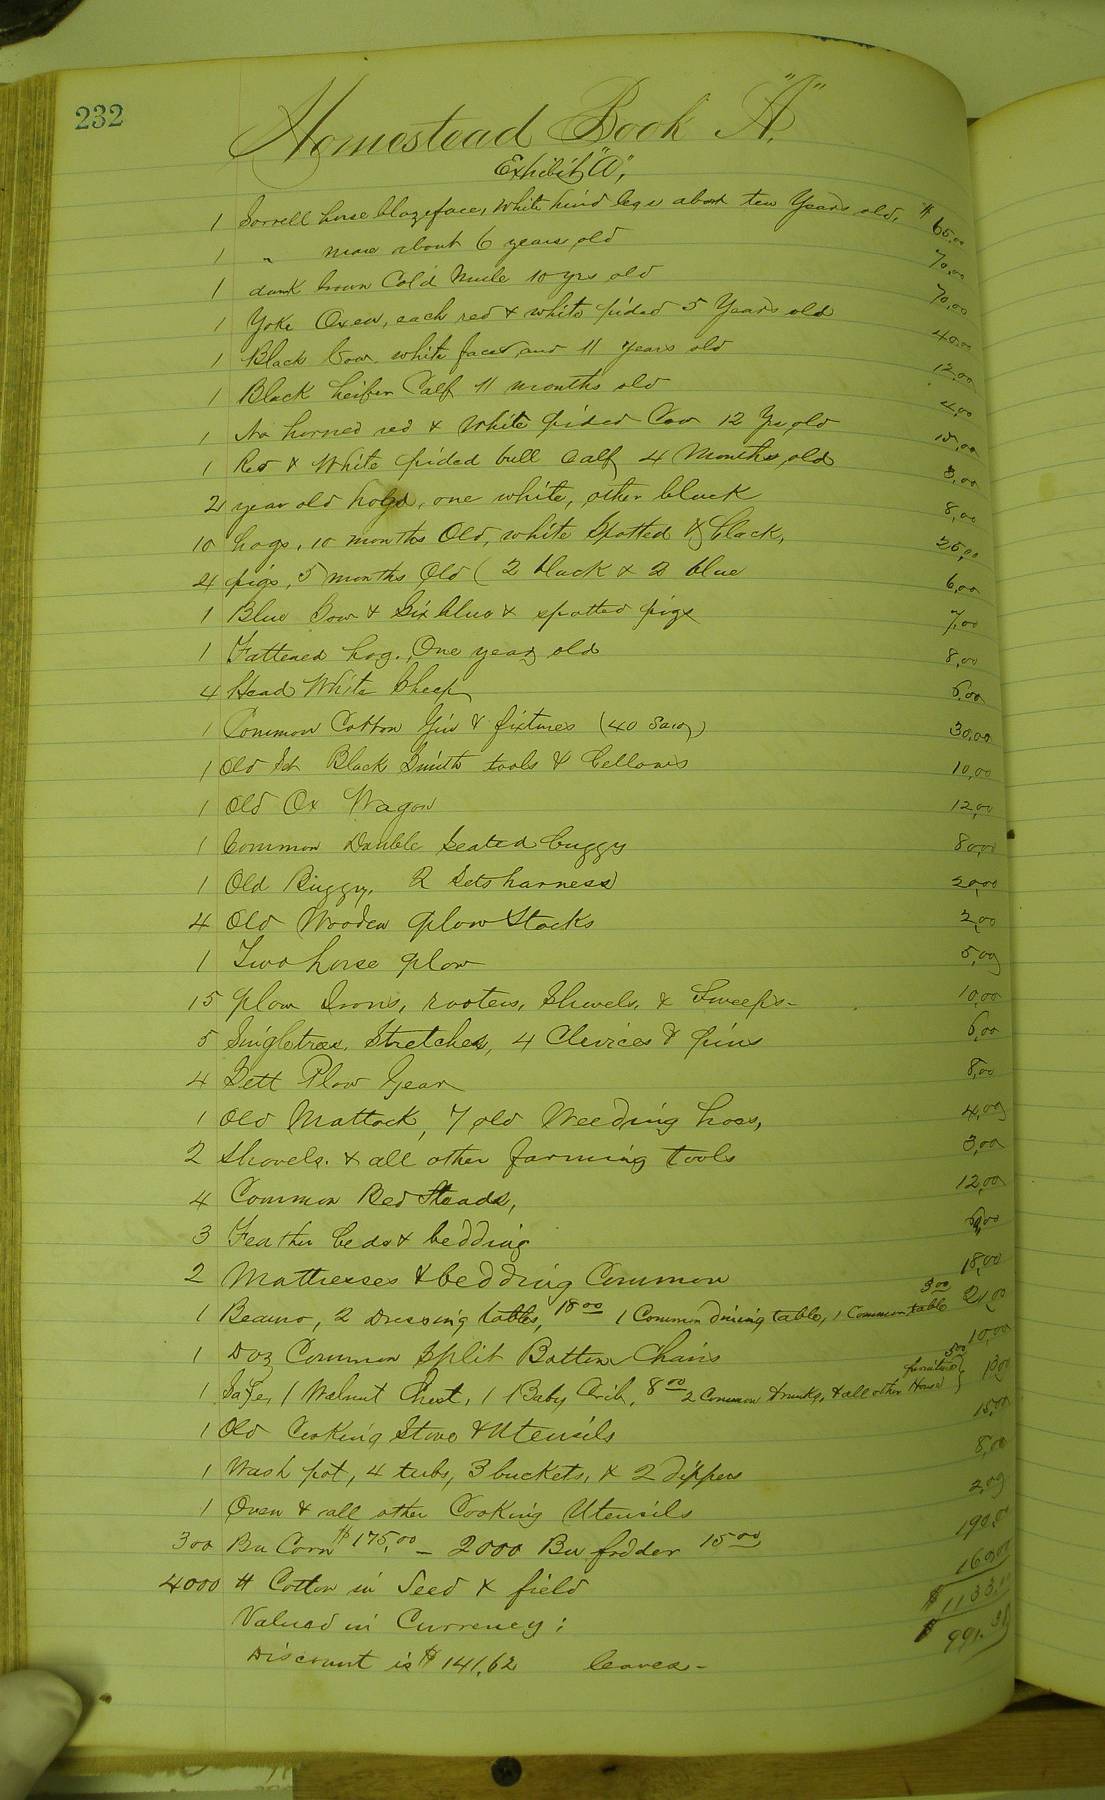 232
Homestead Book "A."
Exhibit "A",
1 Sorrell horse blazeface, White hind legs about ten Years old, $ 65,00
1 " mare about 6 years old 70,00
1 dark brown Col'd Mule 10 yrs old 70,00
1 Yoke Oxen, each red & white pided 5 Years old 40,00
1 Black Cow white faced and 11 years old 12,00
1 Black heifer Calf 11 months old 4,00
1 No horned red & White pided Cow 12 Yrs old 15,00
1 Red & White pided bull Calf 4 Months old 3,00
2 year old hogs, one white, other black 8,00
10 hogs, 10 months Old, white Spotted & black, 25,00
4 pigs, 5 months Old (2 black & 2 blue 6,00
1 Blue Sow & Six blue & spotted pigs 7,00
1 Fattened hog. One year old 8,00
4 Head White Sheep 6,00
1 Common Cotton Gin & fixtures (40 Saws) 30,00
1 Old Set Black Smith tools & bellows 10,00
1 Old Ox Wagon 12,00
1 Common Double Seated buggy 80,00
1 Old Buggy, 2 Sets harness 20,00
4 Old Wooden Plow Stocks 2,00
1 Two horse plow 5,00
15 Plow Irons, rooters, Shovels, & Sweeps - 10,00
5 Singletrees, Stretches, 4 Clevices & pins 6,00
4 Sett Plow Gear 8,00
1 Old Mattock, 7 old Weeding hoes, 4,00
2 Shovels. & all other farming tools 3,00
4 Common Bed Steads, 12,00
3 Feather beds & bedding
2 Mattresses & bedding Common 18,00
1 Beauro, 2 Dressing tables, 18 00 1 Common dining table, 1 Common table 3 00 21,00
1 Doz Common Split Bottom Chairs 10,00
1 Safe, 1 Walnut Chest, 1 Baby Crib, 8 00 2 Common trunks, & all other House furniture} 5 00 13,00
1 Old Cooking Stove & Utensils 15,00
1 Wash pot, 4 tubs, 3 buckets, & 2 dippers 8,00
1 Oven & all other Cooking Utensils 2,00
300 Bu Corn $175,00 - 2000 Bu fodder 15 00 190,00
4000 # Cotton in Seed & field 160,00
Valued in Currency: $1133,00
Discount is $141,62 leaves - $ 991.38